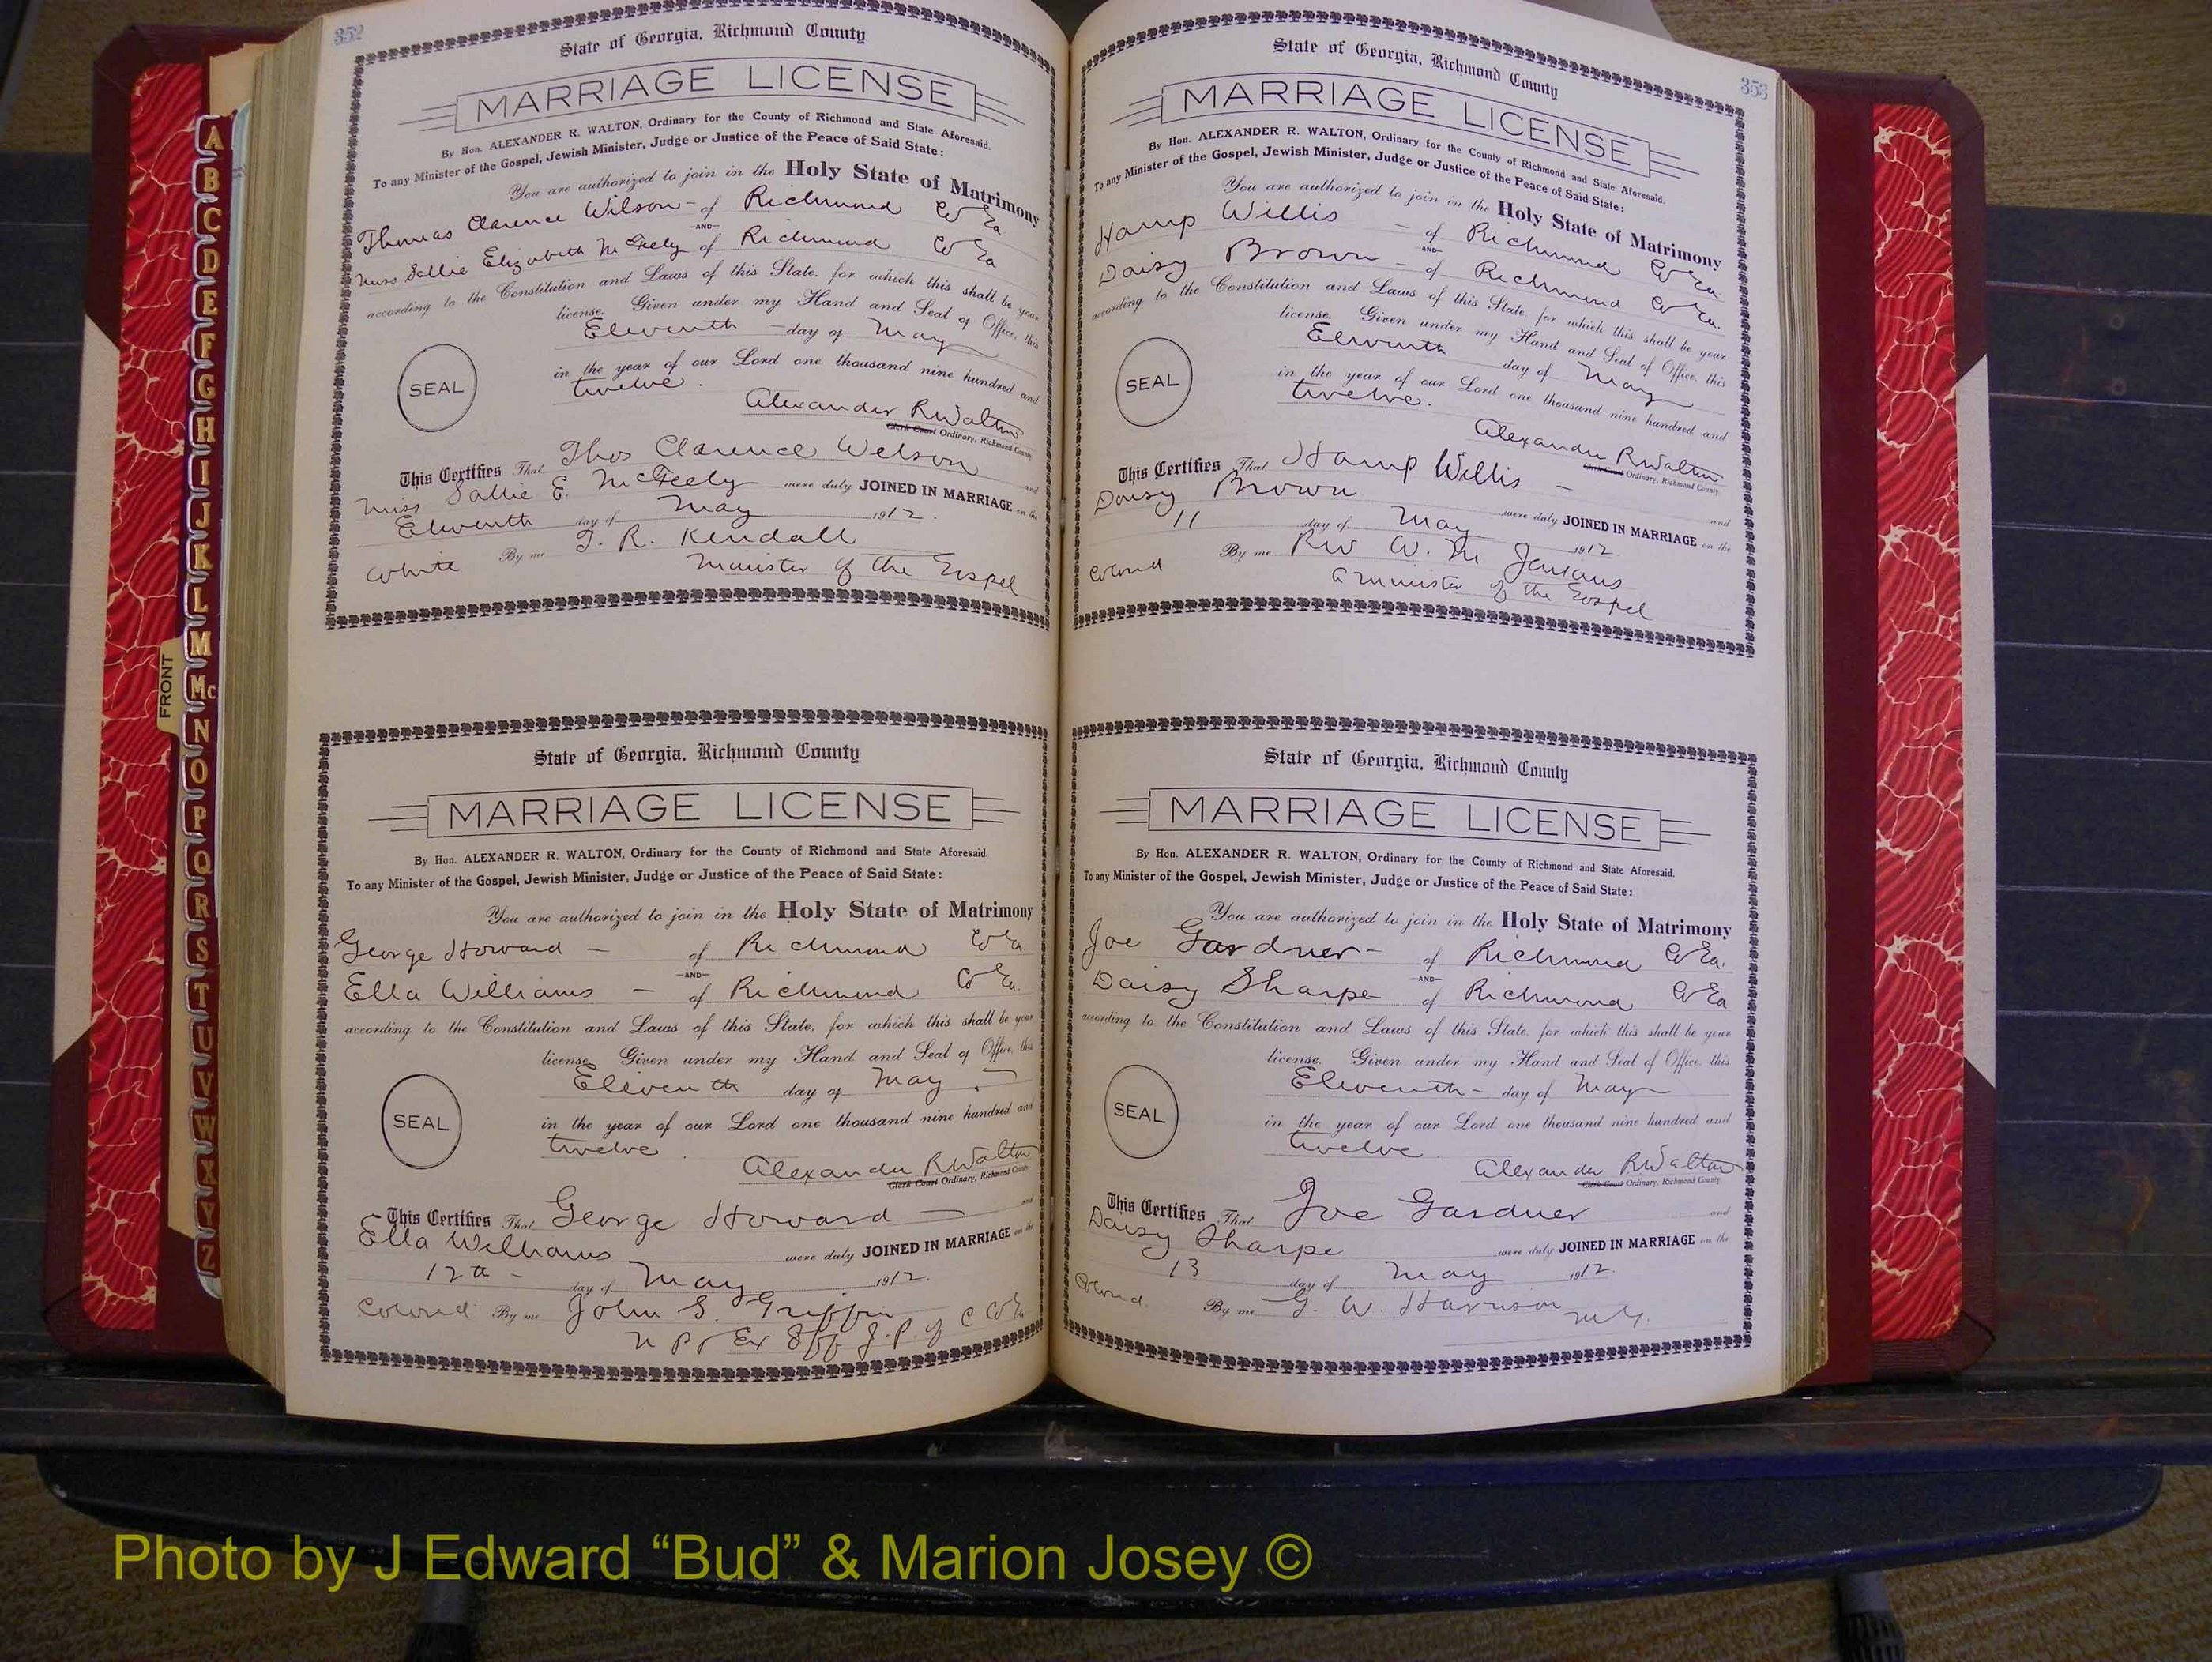 352
State of Georgia, Richmond County
MARRIAGE LICENSE
By Hon. ALEXANDER R. WALTON, Ordinary for the County of Richmond and State Aforesaid.
To any Minister of the Gospel, Jewish Minister, Judge or Justice of the Peace of Said State:
You are authorized to join in the Holy State of Matrimony
Thomas Clarence Wilson - of Richmond Co Ga
AND
Miss Sallie Elizabeth McFeely of Richmond Co Ga
according to the Constitution and Laws of this State, for which this shall be your
license. Given under my Hand and Seal of Office, this
Eleventh - day of May
SEAL
in the year of our Lord one thousand nine hundred and
twelve.
Alexander R Walton
Clerk Court Ordinary, Richmond County
This Certifies That Thos Clarence Wilson and
Miss Sallie E. McFeely were duly JOINED IN MARRIAGE on the
Eleventh day of May 1912.
White By me T. R. Kendall
Minister of the Gospel
State of Georgia, Richmond County
MARRIAGE LICENSE
By Hon. ALEXANDER R. WALTON, Ordinary for the County of Richmond and State Aforesaid.
To any Minister of the Gospel, Jewish Minister, Judge or Justice of the Peace of Said State:
You are authorized to join in the Holy State of Matrimony
George Howard - of Richmond Co Ga
AND
Ella Williams - of Richmond Co Ga.
according to the Constitution and Laws of this State, for which this shall be your
license. Given under my Hand and Seal of Office, this
Eleventh day of May.
SEAL
in the year of our Lord one thousand nine hundred and
twelve.
Alexander R Walton
Clerk Court Ordinary, Richmond County
This Certifies That George Howard - and
Ella Williams were duly JOINED IN MARRIAGE on the
12th - day of May 1912.
Colored By me John S. Griffin
N P & Ex Off J. P. of C Co Ga
353
State of Georgia, Richmond County
MARRIAGE LICENSE
By Hon. ALEXANDER R. WALTON, Ordinary for the County of Richmond and State Aforesaid.
To any Minister of the Gospel, Jewish Minister, Judge or Justice of the Peace of Said State:
You are authorized to join in the Holy State of Matrimony
Hamp Willis - of Richmond Co Ga
AND
Daisy Brown - of Richmond Co Ga.
according to the Constitution and Laws of this State, for which this shall be your
license. Given under my Hand and Seal of Office, this
Eleventh day of May
SEAL
in the year of our Lord one thousand nine hundred and
twelve.
Alexander R Walton
Clerk Court Ordinary, Richmond County
This Certifies That Hamp Willis - and
Daisy Brown were duly JOINED IN MARRIAGE on the
11 day of May 1912.
Colored By me Rev W. M.
a minister of the Gospel
State of Georgia, Richmond County
MARRIAGE LICENSE
By Hon. ALEXANDER R. WALTON, Ordinary for the County of Richmond and State Aforesaid.
To any Minister of the Gospel, Jewish Minister, Judge or Justice of the Peace of Said State:
You are authorized to join in the Holy State of Matrimony
Joe Gardner - of Richmond Co Ga.
AND
Daisy Sharpe of Richmond Co Ga
according to the Constitution and Laws of this State, for which this shall be your
license. Given under my Hand and Seal of Office, this
Eleventh - day of May
SEAL
in the year of our Lord one thousand nine hundred and
twelve
Alexander R Walton
Clerk Court Ordinary, Richmond County
This Certifies That Joe Gardner and
Daisy Sharpe were duly JOINED IN MARRIAGE on the
13 day of May 1912.
Colored. By me G. W. Harrison M.G.
A
B
C
D
E
F
G
H
I
J
K
L
M
Mc
N
O
P
Q
R
S
T
U
V
W
X
Y
Z
FRONT
Photo by J Edward “Bud” & Marion Josey ©